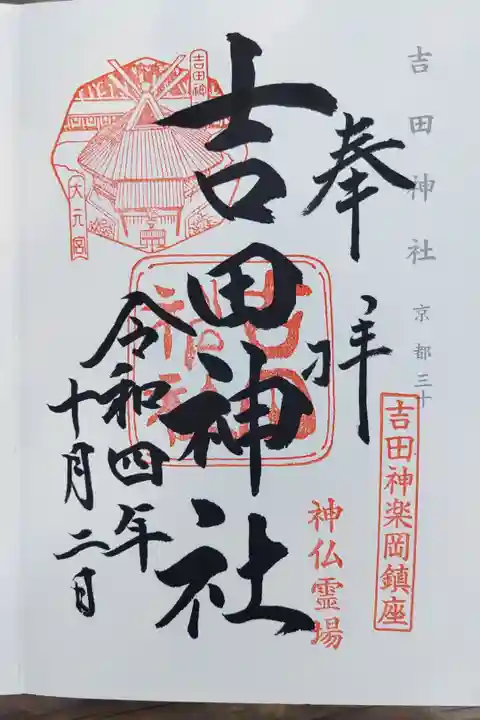 吉田神社 京都三十
奉拝
吉田神楽岡鎮座
神仏霊場
吉田神社
吉田神社
令和四年
十月二日
吉田神
大元宮